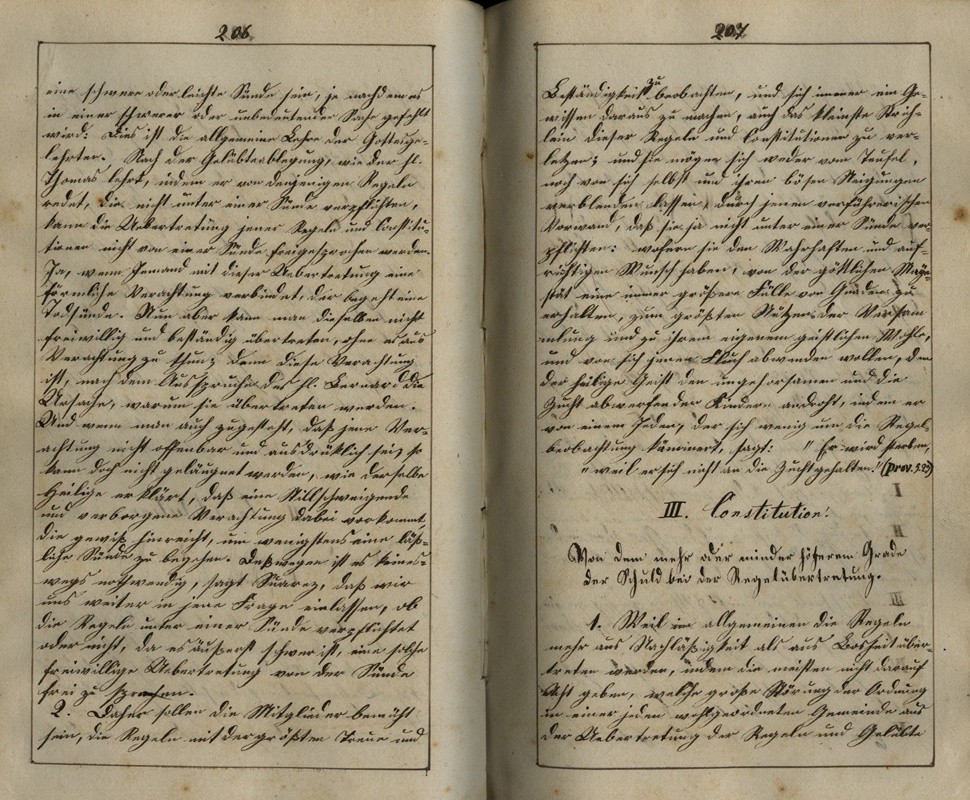 206
eine schwere oder leichte Sünde sein, je nachdem es
in einer schwerer oder unbedeutender Sache gefehlt
wird: Dies ist die allgemeine Lehre der Gottesge-
lehrten. Nach der Gelübteablegung, wie der hl.
Thomas lehrt, indem er von denjenigen Regeln
redet, die nicht unter einer Sünde verpflichten,
kann die Uebertretung jener Regeln und Constitu-
tionen nicht von einer Sünde freigesprochen werden.
Ja, wenn Jemand mit dieser Uebertretung eine
förmliche Verachtung verbindet, der begeht eine
Todsünde. Nun aber kann man dieselben nicht
freiwillig und beständig übertreten, ohne es aus
Verachtung zu thun; denn diese Verachtung
ist, nach dem Ausspruche des hl. Bernard die
Ursache, warum sie übertreten werden.
Und wenn man auch zugesteht, daß jene Ver-
achtung nicht offenbar und ausdrücklich sei, so
kann doch nicht geläugnet werden, wie derselbe
Heilige erklärt, daß eine stillschweigende
und verborgene Verachtung dabei vorkommt,
die gewiß hinreicht, um wenigstens eine läß-
liche Sünde zu begehen. Deßwegen ist es keines-
wegs nothwendig, sagt Suarez, daß wir
uns weiter in jene Frage einlassen, ob
die Regeln unter einer Sünde verpflichtet
oder nicht, da es äußerst schwer ist, eine solche
freiwillige Uebertretung von der Sünde
frei zu sprechen.
2. Daher sollen die Mitglieder bemüht
sein, die Regeln mit der größten Treue und
207
Beständigkeit zu beobachten, und sich immer ein Ge-
wissen daraus zu machen, auch das kleinste Strich-
lein dieser Regeln und Constitutionen zu ver-
letzen; und sie mögen sich weder vom Teufel,
noch von sich selbst und ihren bösen Neigungen
verblenden lassen, durch jenen verführerischen
Vorwand, daß sie ja nicht unter einer Sünde ver-
pflichten: wofern sie den Wahrhaften und auf-
richtigen Wunsch haben, von der göttlichen Maje-
stät eine immer größere Fülle von Gnaden zu
erhalten, zum größten Nutzen der Versam
mlung und zu ihrem eigenen geistlichen Wohle,
und von sich jenen Fluch abwenden wollen, den
der heilige Geist den ungehorsamen und die
Zucht abwerfenden Kindern androht, indem er
von einem Jeden, der sich wenig um die Regel
beobachtung kümmert, sagt: "Er wird sterben,
"weil er sich nicht an die Zucht gehalten." (prov. 5.23)
III. Constitution.
Von dem mehr oder minder höherem Grade
der Schuld bei der Regelübertretung.
1. Weil im allgemeinen die Regeln
mehr aus Nachläßigkeit als aus Bosheit über-
treten werden, indem die meisten nicht darauf
Acht geben, welche große Störung der Ordnung
in einer jeden wohlgeordneten Gemeinde aus
der Uebertretung der Regeln und Gelübte